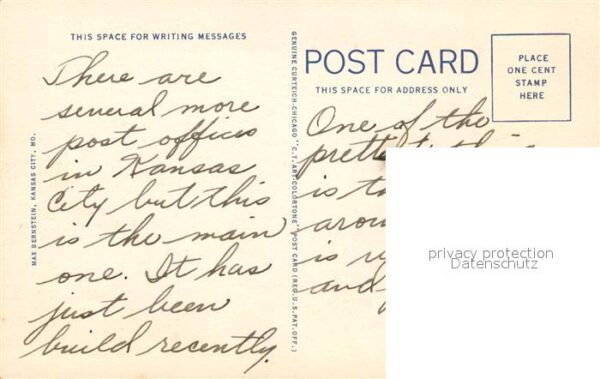 THIS SPACE FOR WRITING MESSAGES
There are
several more
post offices
in Kansas
City but this
is the main
one. It has
just been
build recently.
MAX BERNSTEIN, KANSAS CITY, MO.
GENUINE CURTEICH-CHICAGO "C. T. ART-COLORTONE" POST CARD (REG. U. S. PAT. OFF.)
POST CARD
THIS SPACE FOR ADDRESS ONLY
PLACE
ONE CENT
STAMP
HERE
One of the
is
and
privacy protection
Datenschutz